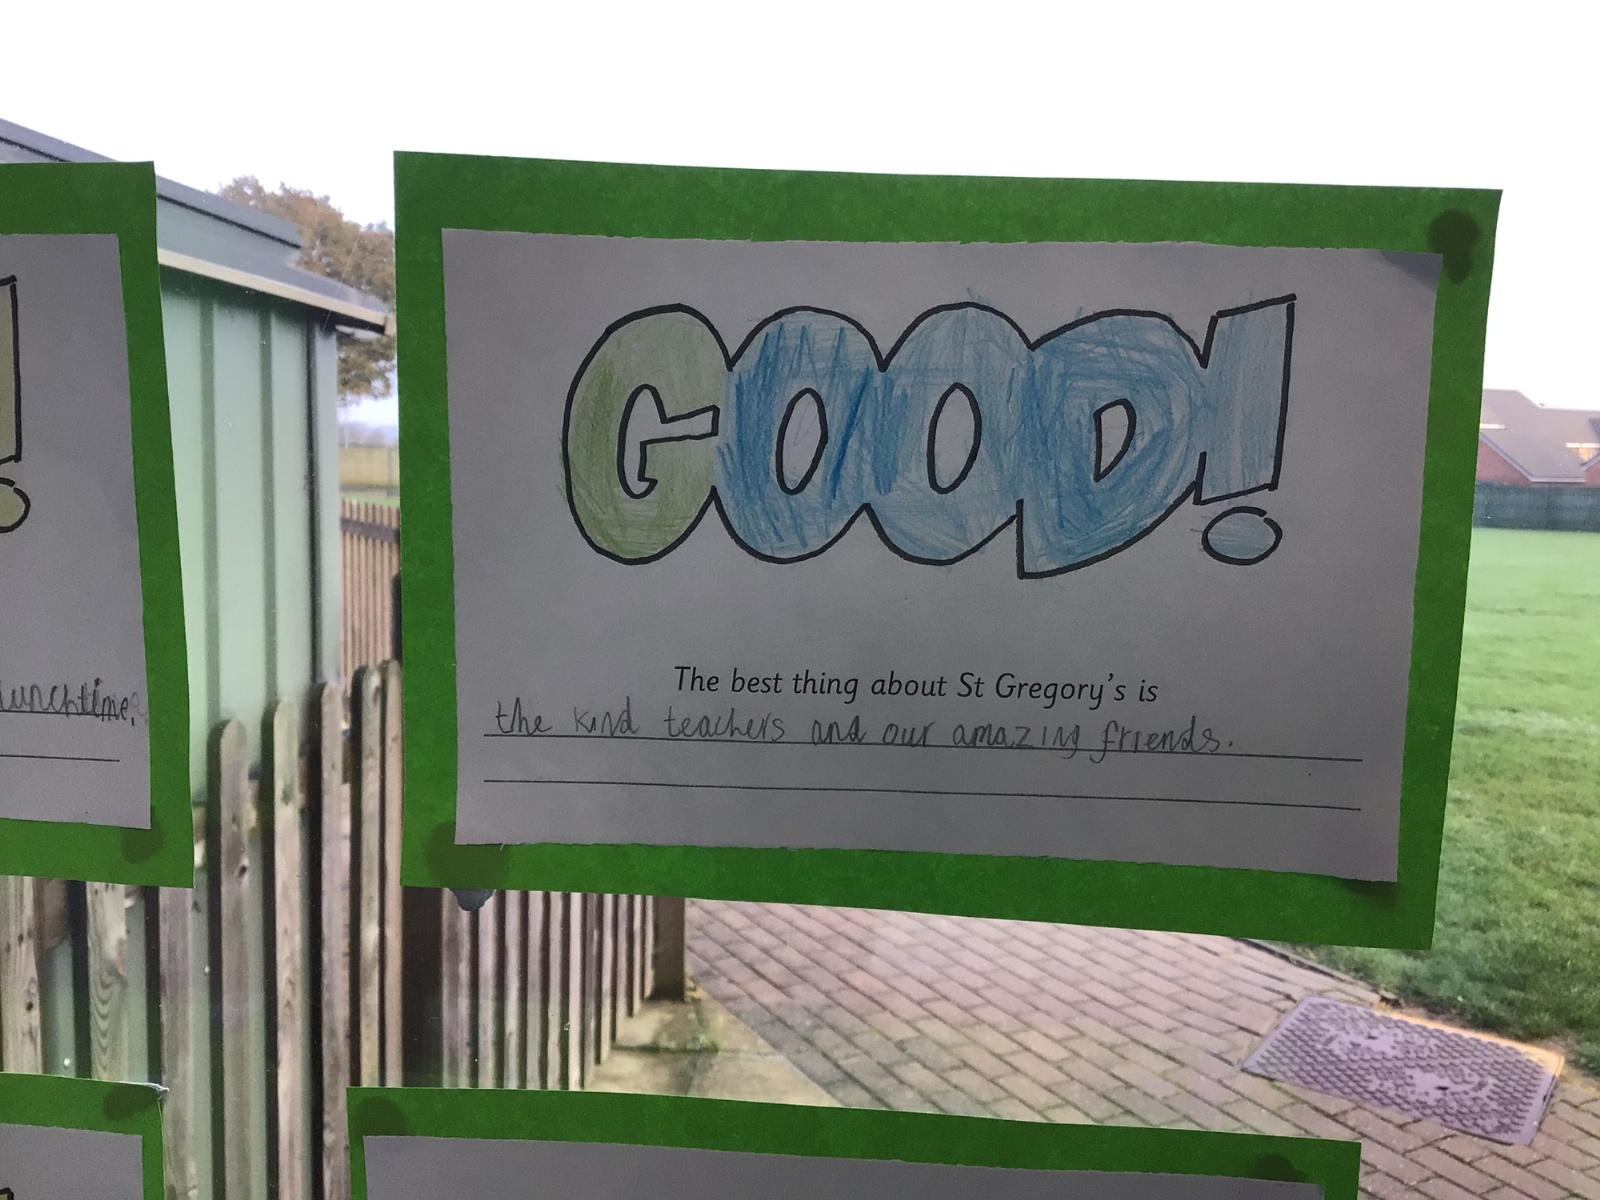 GOOD!
The best thing about St Gregory's is
the kind teachers and our amazing friends.
lunchtime.